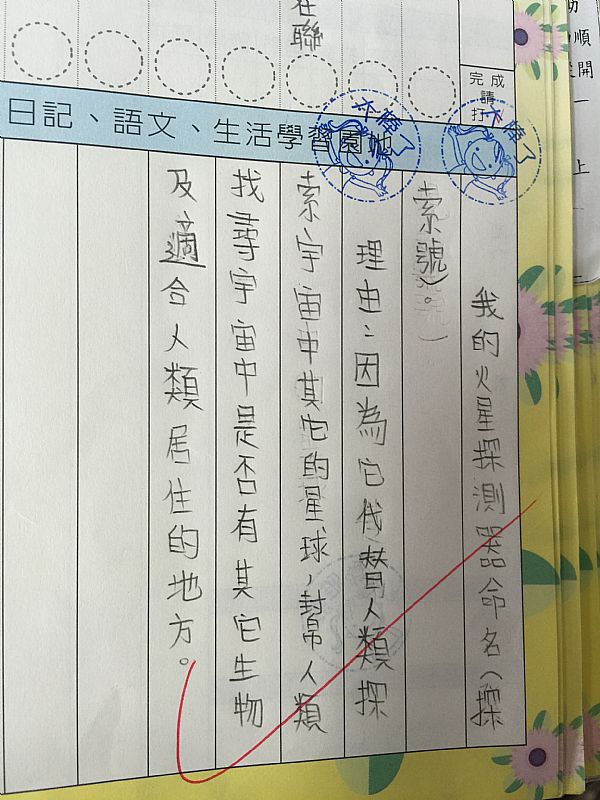 在聯
完成
請
打
日記、語文、生活學習園地
太棒了
太棒了
我的火星探測器命名(探
索號)。
理由:因為它代替人類探
索宇宙中其它的星球,幫人類
找尋宇宙中是否有其它生物
及適合人類居住的地方。
順
開
一
上